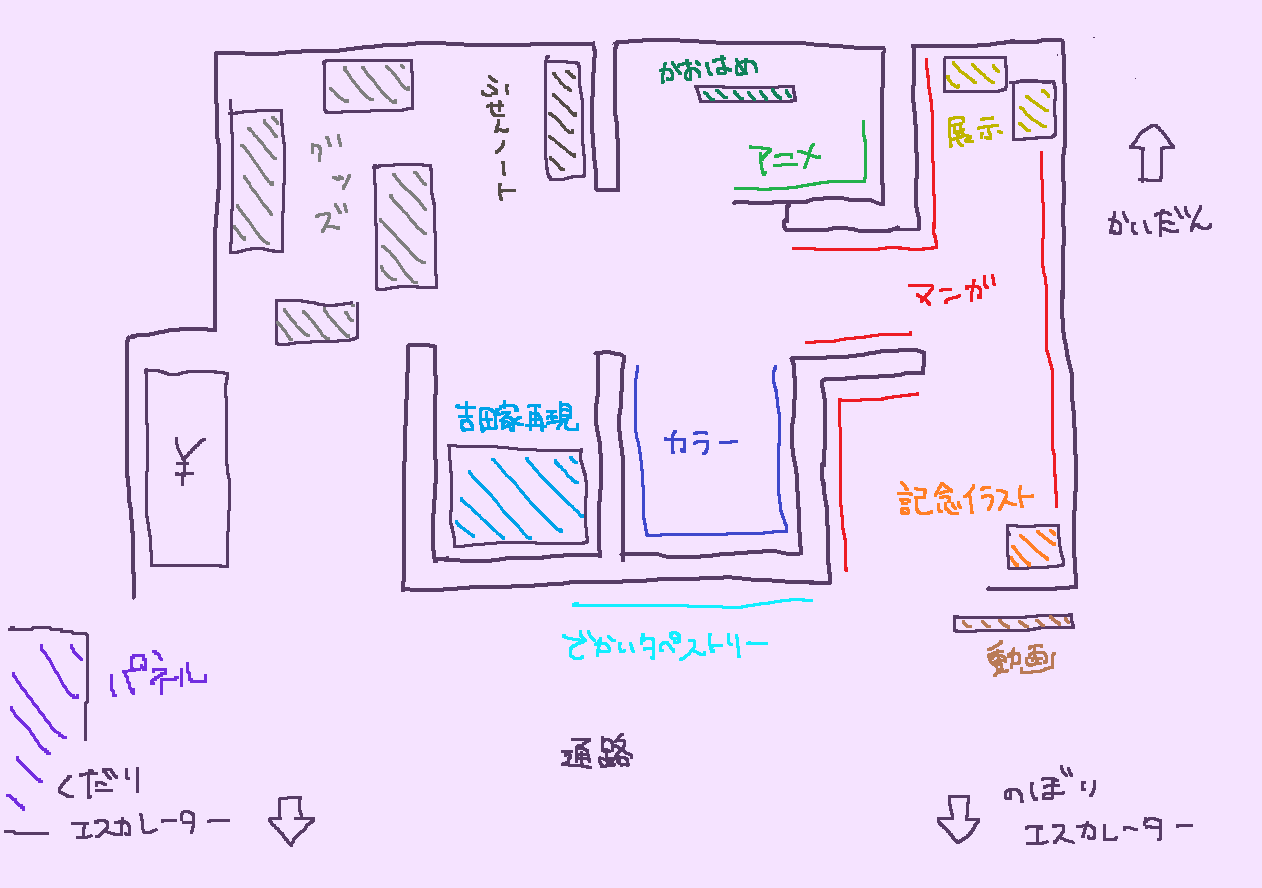 かおはめ
ふせんノート
グッズ
アニメ
展示
かいだん
マンガ
吉田家再現
カラー
¥
記念イラスト
でかいタペストリー
動画
パネル
通路
くだり
エスカレーター
のぼり
エスカレーター